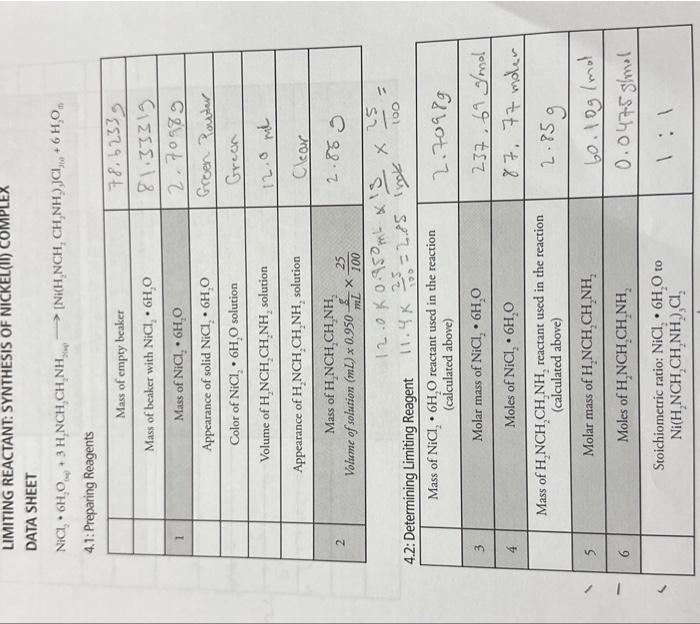 LIMITING REACTANT: SYNTHESIS OF NICKEL(II) COMPLEX
DATA SHEET
NiCl₂ • 6H₂O(aq) + 3 H₂NCH₂CH₂NH₂(aq) ⟶ [Ni(H₂NCH₂ CH₂NH₂)₃]Cl₂(s) + 6 H₂O(l)
4.1: Preparing Reagents
Mass of empty beaker 78.6233g
Mass of beaker with NiCl₂ • 6H₂O 81.3331g
1 Mass of NiCl₂ • 6H₂O 2.7098g
Appearance of solid NiCl₂ • 6H₂O Green Powder
Color of NiCl₂ • 6H₂O solution Green
Volume of H₂NCH₂CH₂NH₂ solution 12.0 mL
Appearance of H₂NCH₂CH₂NH₂ solution Clear
2 Mass of H₂NCH₂CH₂NH₂ 2.85 g
Volume of solution (mL) x 0.950 g/mL × 25/100
12.0 x 0.950 mL x 1g/1mL x 25/100 =
11.4 x 25/100 = 2.85
4.2: Determining Limiting Reagent
Mass of NiCl₂ • 6H₂O reactant used in the reaction 2.7098g
(calculated above)
3 Molar mass of NiCl₂ • 6H₂O 237.69 g/mol
4 Moles of NiCl₂ • 6H₂O 87.77 moles
Mass of H₂NCH₂CH₂NH₂ reactant used in the reaction 2.85 g
(calculated above)
5 Molar mass of H₂NCH₂CH₂NH₂ 60.10g/mol
6 Moles of H₂NCH₂CH₂NH₂ 0.0475g/mol
Stoichiometric ratio: NiCl₂ • 6H₂O to 1 : 1
Ni(H₂NCH₂CH₂NH₂)₃Cl₂